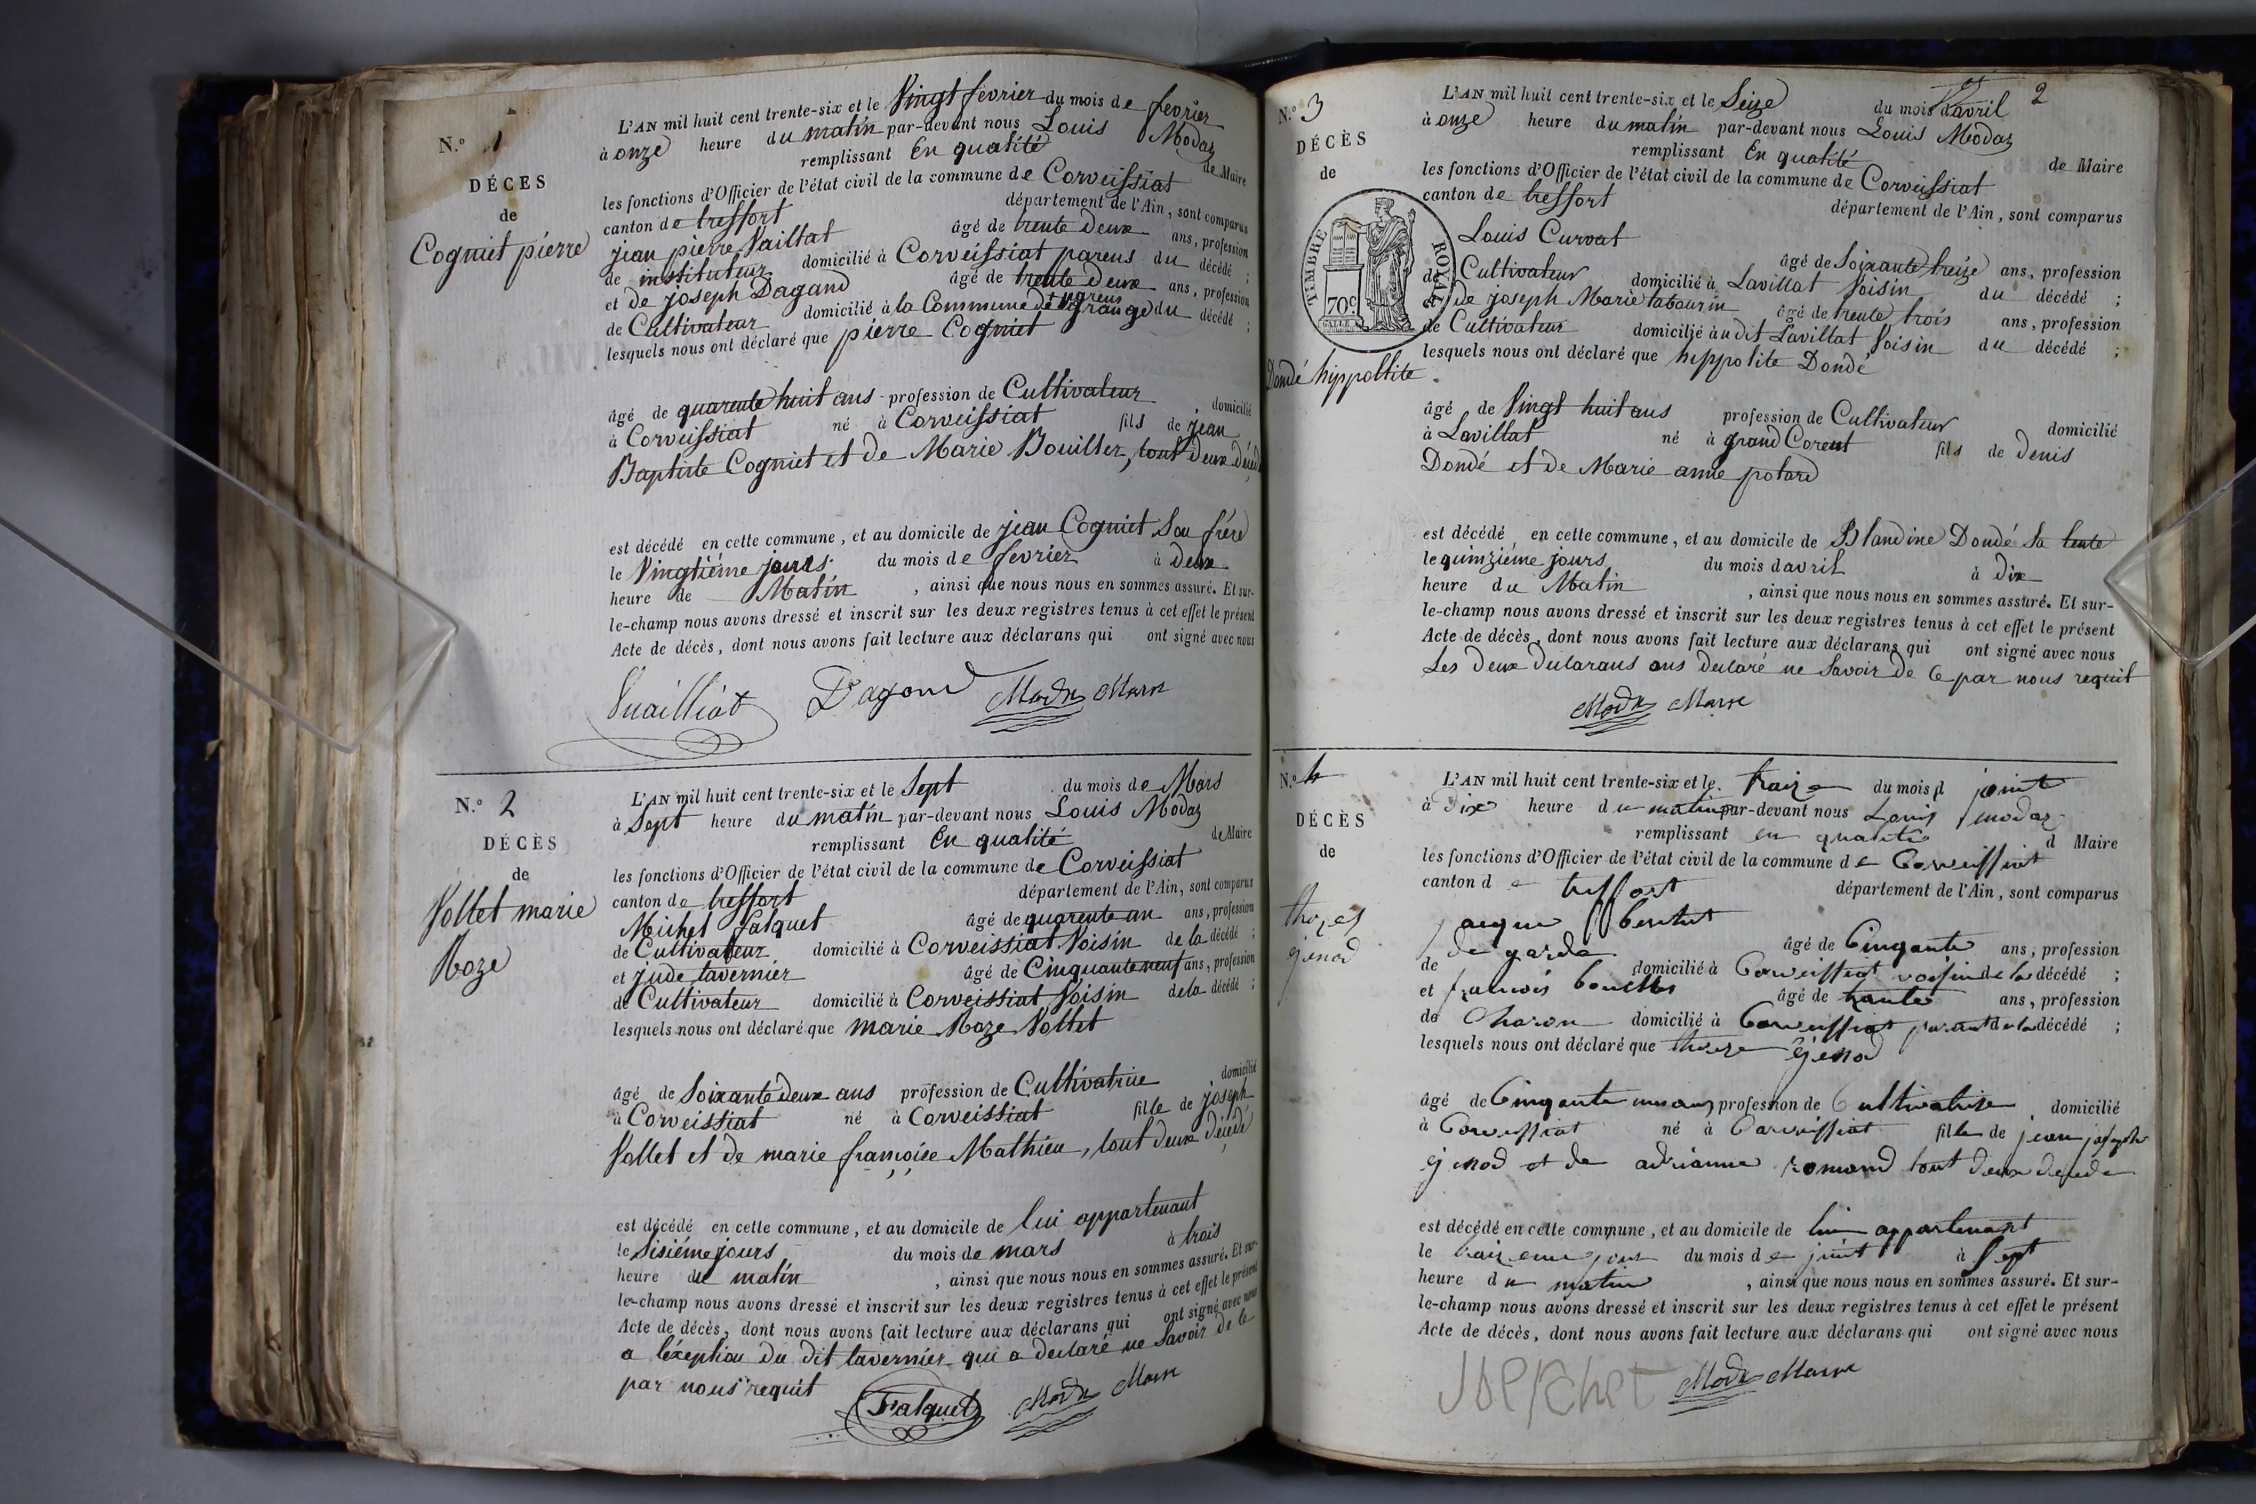 N.º 1
DÉCES
de
Cogniet pierre
L'AN mil huit cent trente-six et le Vingt fevrier du mois de fevrier
à onze heure du matin par-devant nous Louis Modaz
remplissant En qualité de Maire
les fonctions d'Officier de l'état civil de la commune de Corveissiat
canton de treffort département de l'Ain, sont comparus
jean pierre Vaillat âgé de trente Deux ans, profession
de instituteur domicilié à Corveissiat parens du décédé ;
et de joseph Dagand âgé de trente Deux ans, profession
de Cultivateur domicilié à la Commune de grange du décédé ;
lesquels nous ont déclaré que pierre Cogniet
âgé de quarente huit ans profession de Cultivateur, domicilié
à Corveissiat né à Corveissiat fils de jean
Baptiste Cogniet et de Marie Bouiller, tout Deux décédé
est décédé en cette commune, et au domicile de jean Cogniet Son frére
le Vingtiéme jours du mois de fevrier à deux
heure de Matin, ainsi que nous nous en sommes assuré. Et sur-
le-champ nous avons dressé et inscrit sur les deux registres tenus à cet effet le présent
Acte de décès, dont nous avons fait lecture aux déclarans qui ont signé avec nous
Vuailliat Dagand Modaz Maire
N.º 2
DÉCÈS
de
Vollet marie
Roze
L'AN mil huit cent trente-six et le Sept du mois de Mars
à Sept heure du matin par-devant nous Louis Modaz
remplissant En qualité de Maire
les fonctions d'Officier de l'état civil de la commune de Corveissiat
canton de treffort département de l'Ain, sont comparus
Michel falquet âgé de quarente un ans, profession
de Cultivateur domicilié à Corveissiat Voisin de la décédé ;
et jude tavernier âgé de Cinquante neuf ans, profession
de Cultivateur domicilié à Corveissiat Voisin de la décédé ;
lesquels nous ont déclaré que marie Roze Vollet
âgé de Soixante deux ans profession de Cultivatrice domicilié
à Corveissiat né à Corveissiat fille de joseph
Vollet et de marie françoise Mathieu, tout deux décédé
est décédé en cette commune, et au domicile de lui appartenant
le Sisiéme jours du mois de mars à trois
heure du matin, ainsi que nous nous en sommes assuré. Et sur-
le-champ nous avons dressé et inscrit sur les deux registres tenus à cet effet le présent
Acte de décès, dont nous avons fait lecture aux déclarans qui ont signé avec nous
a léxeption du dit tavernier qui a declaré ne Savoir de Ce
par nous requit
Falquet Modaz Maire
2
N.º 3
DÉCÈS
de
TIMBRE ROYAL
70c
Dondé hippolite
L'AN mil huit cent trente-six et le Seize du mois d'avril
à onze heure du matin par-devant nous Louis Modaz
remplissant En qualité de Maire
les fonctions d'Officier de l'état civil de la commune de Corveissiat
canton de treffort département de l'Ain, sont comparus
Louis Curvat âgé de Soixante treize ans, profession
de Cultivateur domicilié à Lavillat Voisin du décédé ;
et de joseph Marie tabourin âgé de trente trois ans, profession
de Cultivateur domicilié à udit Lavillat Voisin du décédé ;
lesquels nous ont déclaré que hippolite Dondé
âgé de Vingt huit ans profession de Cultivateur domicilié
à Lavillat né à grand Corent fils de Denis
Dondé et de Marie anne potard
est décédé en cette commune, et au domicile de Blandine Dondé Sa tente
le quinziéme jours du mois davril à dix
heure du Matin, ainsi que nous nous en sommes assuré. Et sur-
le-champ nous avons dressé et inscrit sur les deux registres tenus à cet effet le présent
Acte de décès, dont nous avons fait lecture aux déclarans qui ont signé avec nous
Les deux declarans ons declaré ne Savoir de Ce par nous requit
Modaz Maire
N.º 4
DÉCÈS
de
therese
genod
L'AN mil huit cent trente-six et le traize du mois d juint
à Dix heure du matin par-devant nous Louis modaz
remplissant en qualité d Maire
les fonctions d'Officier de l'état civil de la commune de Corveissiat
canton de treffort département de l'Ain, sont comparus
jaque berchet
de garde âgé de Cinqante ans, profession
de domicilié à Corveissiat voisin de la décédé ;
et francois bouiller âgé de trante ans, profession
de Charon domicilié à Corveissiat parant de la décédé ;
lesquels nous ont déclaré que therese genod
âgé de Cinqante un ans profession de Cultivatrise domicilié
à Corveissiat né à Corveissiat fille de jean joseph
genod et de adrianne romand tout deux decede
est décédé en cette commune, et au domicile de lui appartenant
le traizeme jour du mois de juint à Sept
heure du matin, ainsi que nous nous en sommes assuré. Et sur-
le-champ nous avons dressé et inscrit sur les deux registres tenus à cet effet le présent
Acte de décès, dont nous avons fait lecture aux déclarans qui ont signé avec nous
J berchet Modaz Maire